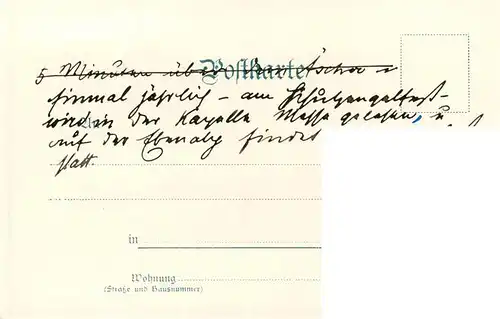 5 Minuten über der Äscher
Postkarte
Einmal jährlich – am Schutzengelfest –
wird in der Kapelle Messe gelesen, u
auf der Ebenalp findet
statt.
in
Wohnung
(Straße und Hausnummer)